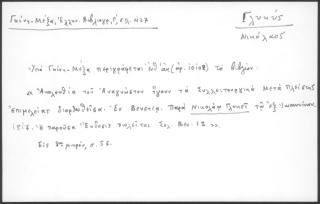 Γκίνη-Μέξα, Ἑλλην. Βιβλιογρ. Γ', σελ. 427
Γλυκύς
Νικόλαος
Ὑπό Γκίνη-Μέξα περιγράφεται (ἀρ. 10108) τό βιβλίον:
« Ἀκολουθία τοῦ Ἀναγνώστου ἤγουν τά Συλλειτουργικά Μετά Πλείστης
ἐπιμελείας διορθωθεῖσα. Ἐν Βενετίᾳ. Παρά Νικολάῳ Γλυκεῖ τῷ ἐξ Ἰωαννίνων.
Ἡ παροῦσα πωλεῖται Βεν. »
Εἰς μικρόν, σ.